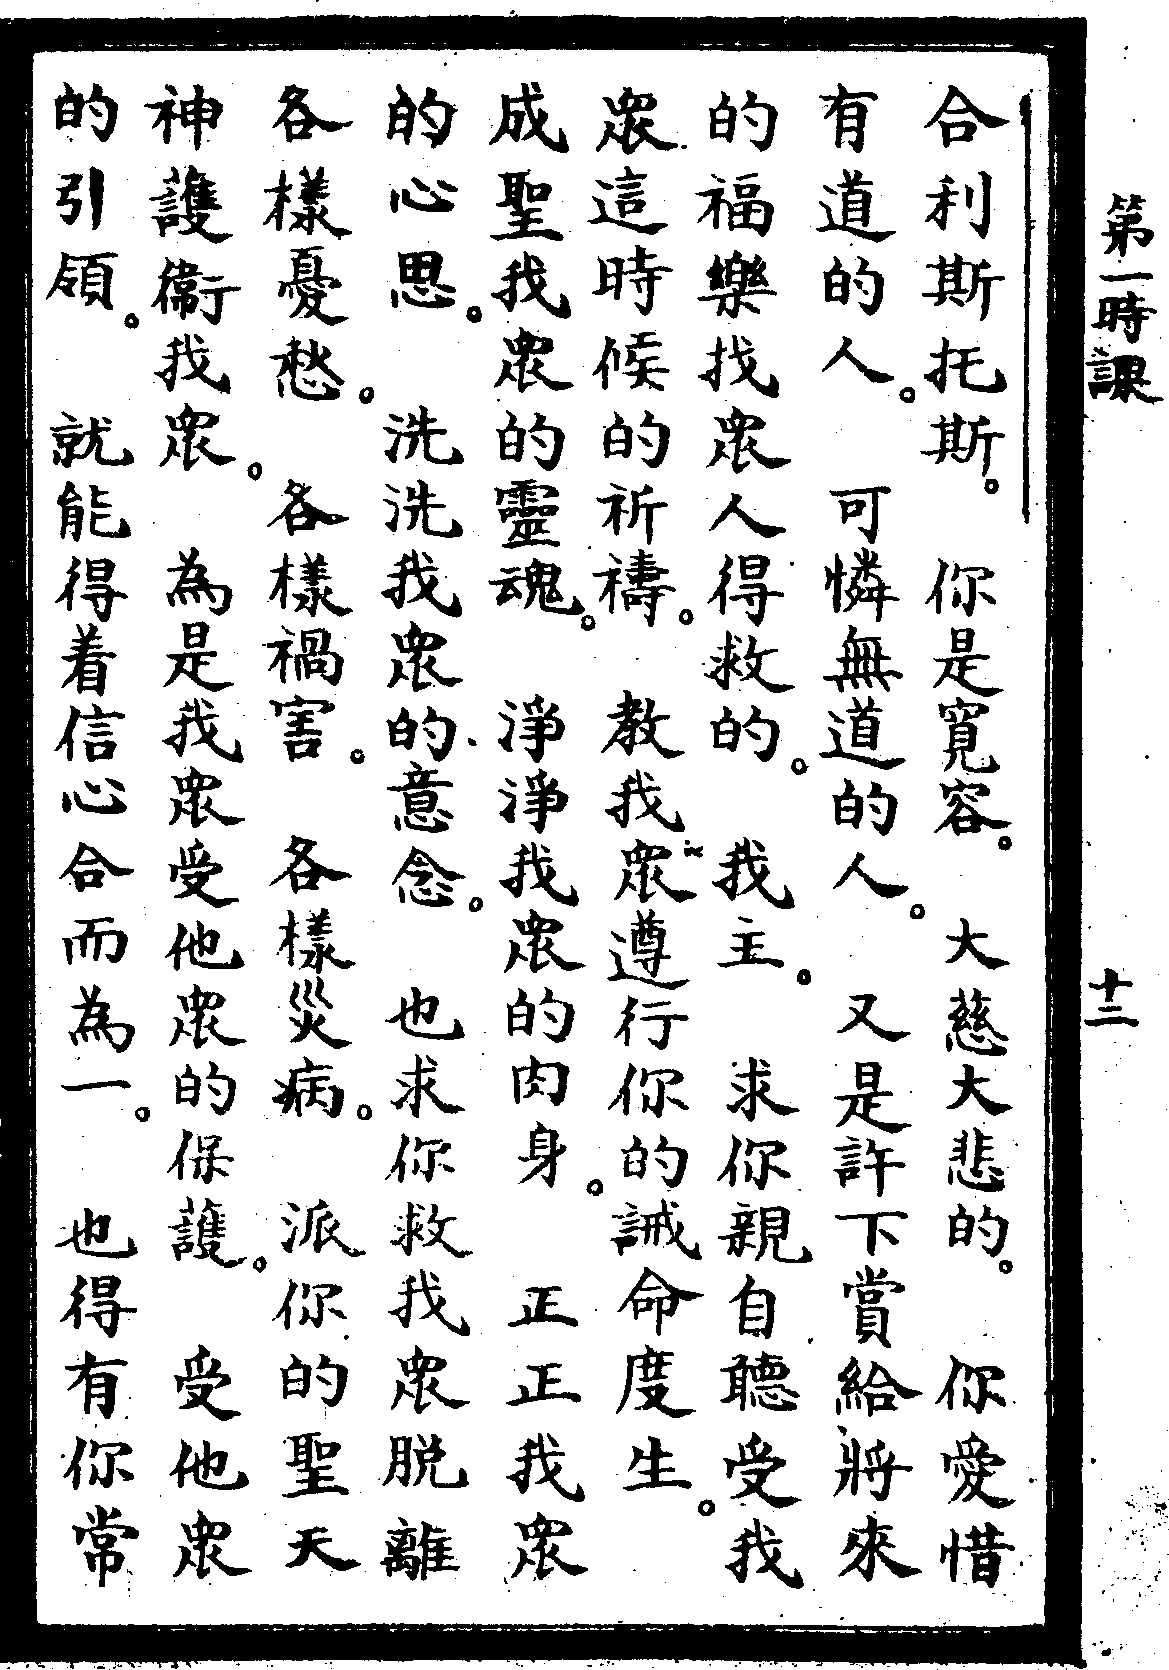 第一時課
十二
合利斯托斯。你是寬容。大慈大悲的。你愛惜
有道的人。可憐無道的人。又是許下賞給將來
的福樂找眾人得救的。我主。求你親自聽受我
眾這時候的祈禱。教我眾遵行你的誡命度生。
成聖我眾的靈魂。淨淨我眾的肉身。正正我眾
的心思。洗洗我眾的意念。也求你救我眾脫離
各樣憂愁。各樣禍害。各樣災病。派你的聖天
神護衛我眾。為是我眾受他眾的保護。受他眾
的引領。就能得着信心合而為一。也得有你常